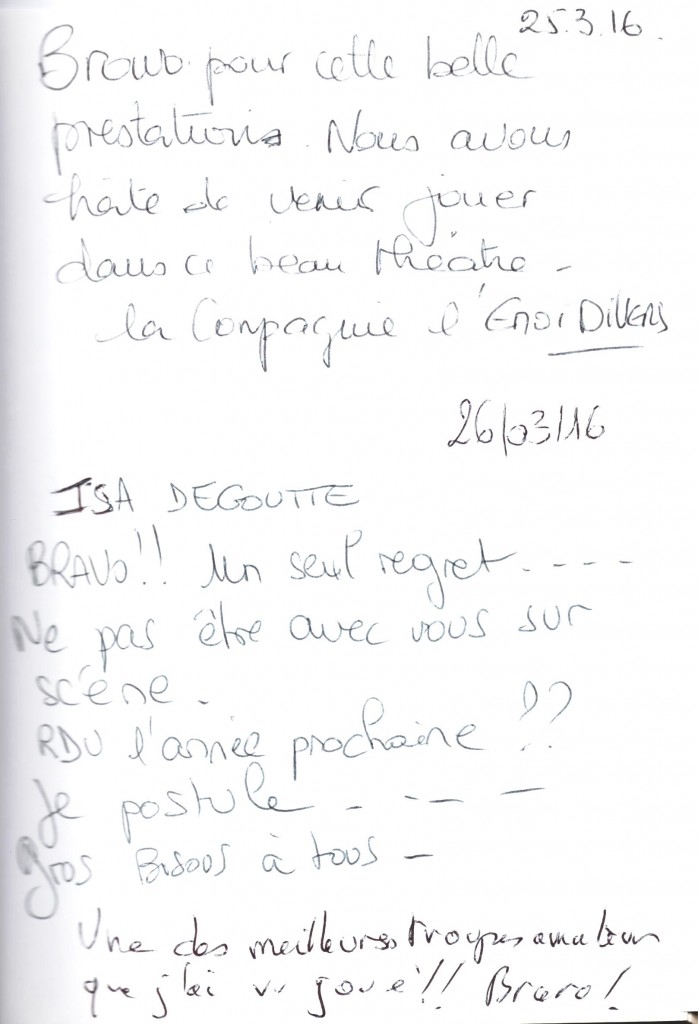 25.3.16.
Bravo pour cette belle
prestations. Nous avons
hâte de venir jouer
dans ce beau théâtre -
la Compagnie l'
26/03/16
ISA DEGOUTTE
BRAVO!! Un seul regret.----
Ne pas être avec vous sur
scène.
RDV l'année prochaine !??
Je postule - -- -
Gros Bisous à tous -
Une des meilleures troupes amateur
que j'ai vu joué!! Bravo!